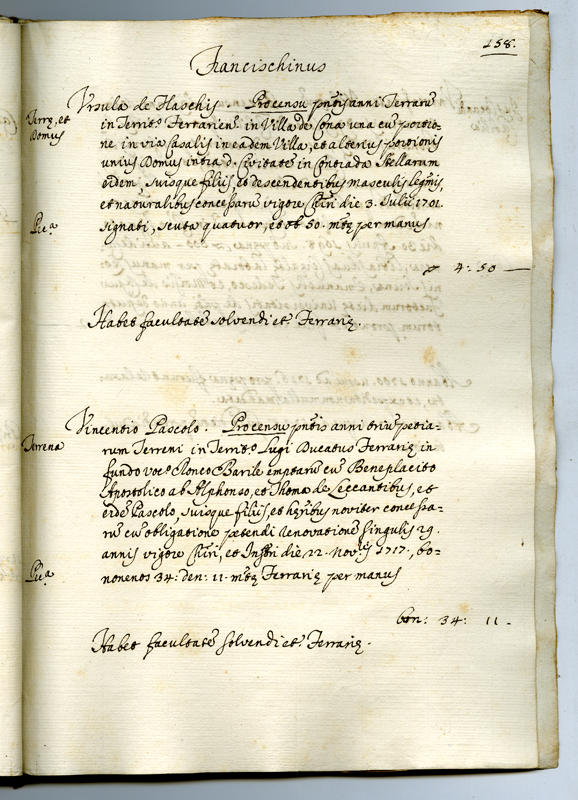 158.
Francischinus
Terrę, et
Domus
Vrsula de Haschis. Pro censu pñtis anni Terrarũ
in Territ.o Ferrarien. in Villa de Cona una cũ portio-
ne in via Casalis in eadem Villa, et alterius portionis
unius Domus intra d. Civitatẽ in Contrada Stellarum
eidem, suisque filiis, et descendentibus masculis legmis,
et naturalibus concessarũ vigore die 3. Julii 1701.
signati, scuta quatuor, et ob 50. mtę per manus
4: 50
Habet facultatẽ solvendi et. Ferrarię.
Terrena
Vincentio Pascolo. Pro censu pñtis anni triũ petia-
rum Terreni in Territ.o Lugi Ducatus Ferrarię in
fundo voc.o Ronco Barile emptarũ cũ Beneplacito
Apostolico ab Alphonso, et Thoma de Leccantibus, et
eidẽ Pascolo, suisque filiis, et hęribus noviter concessa-
rũ cũ obligatione petendi renovationẽ singulis 29.
annis vigore et die 22. Nov.is 1717., bo-
nonenos 34: den: 11. mtę Ferrarię per manus
bon: 34: 11 -
Habet facultatẽ solvendi et. Ferrarię.